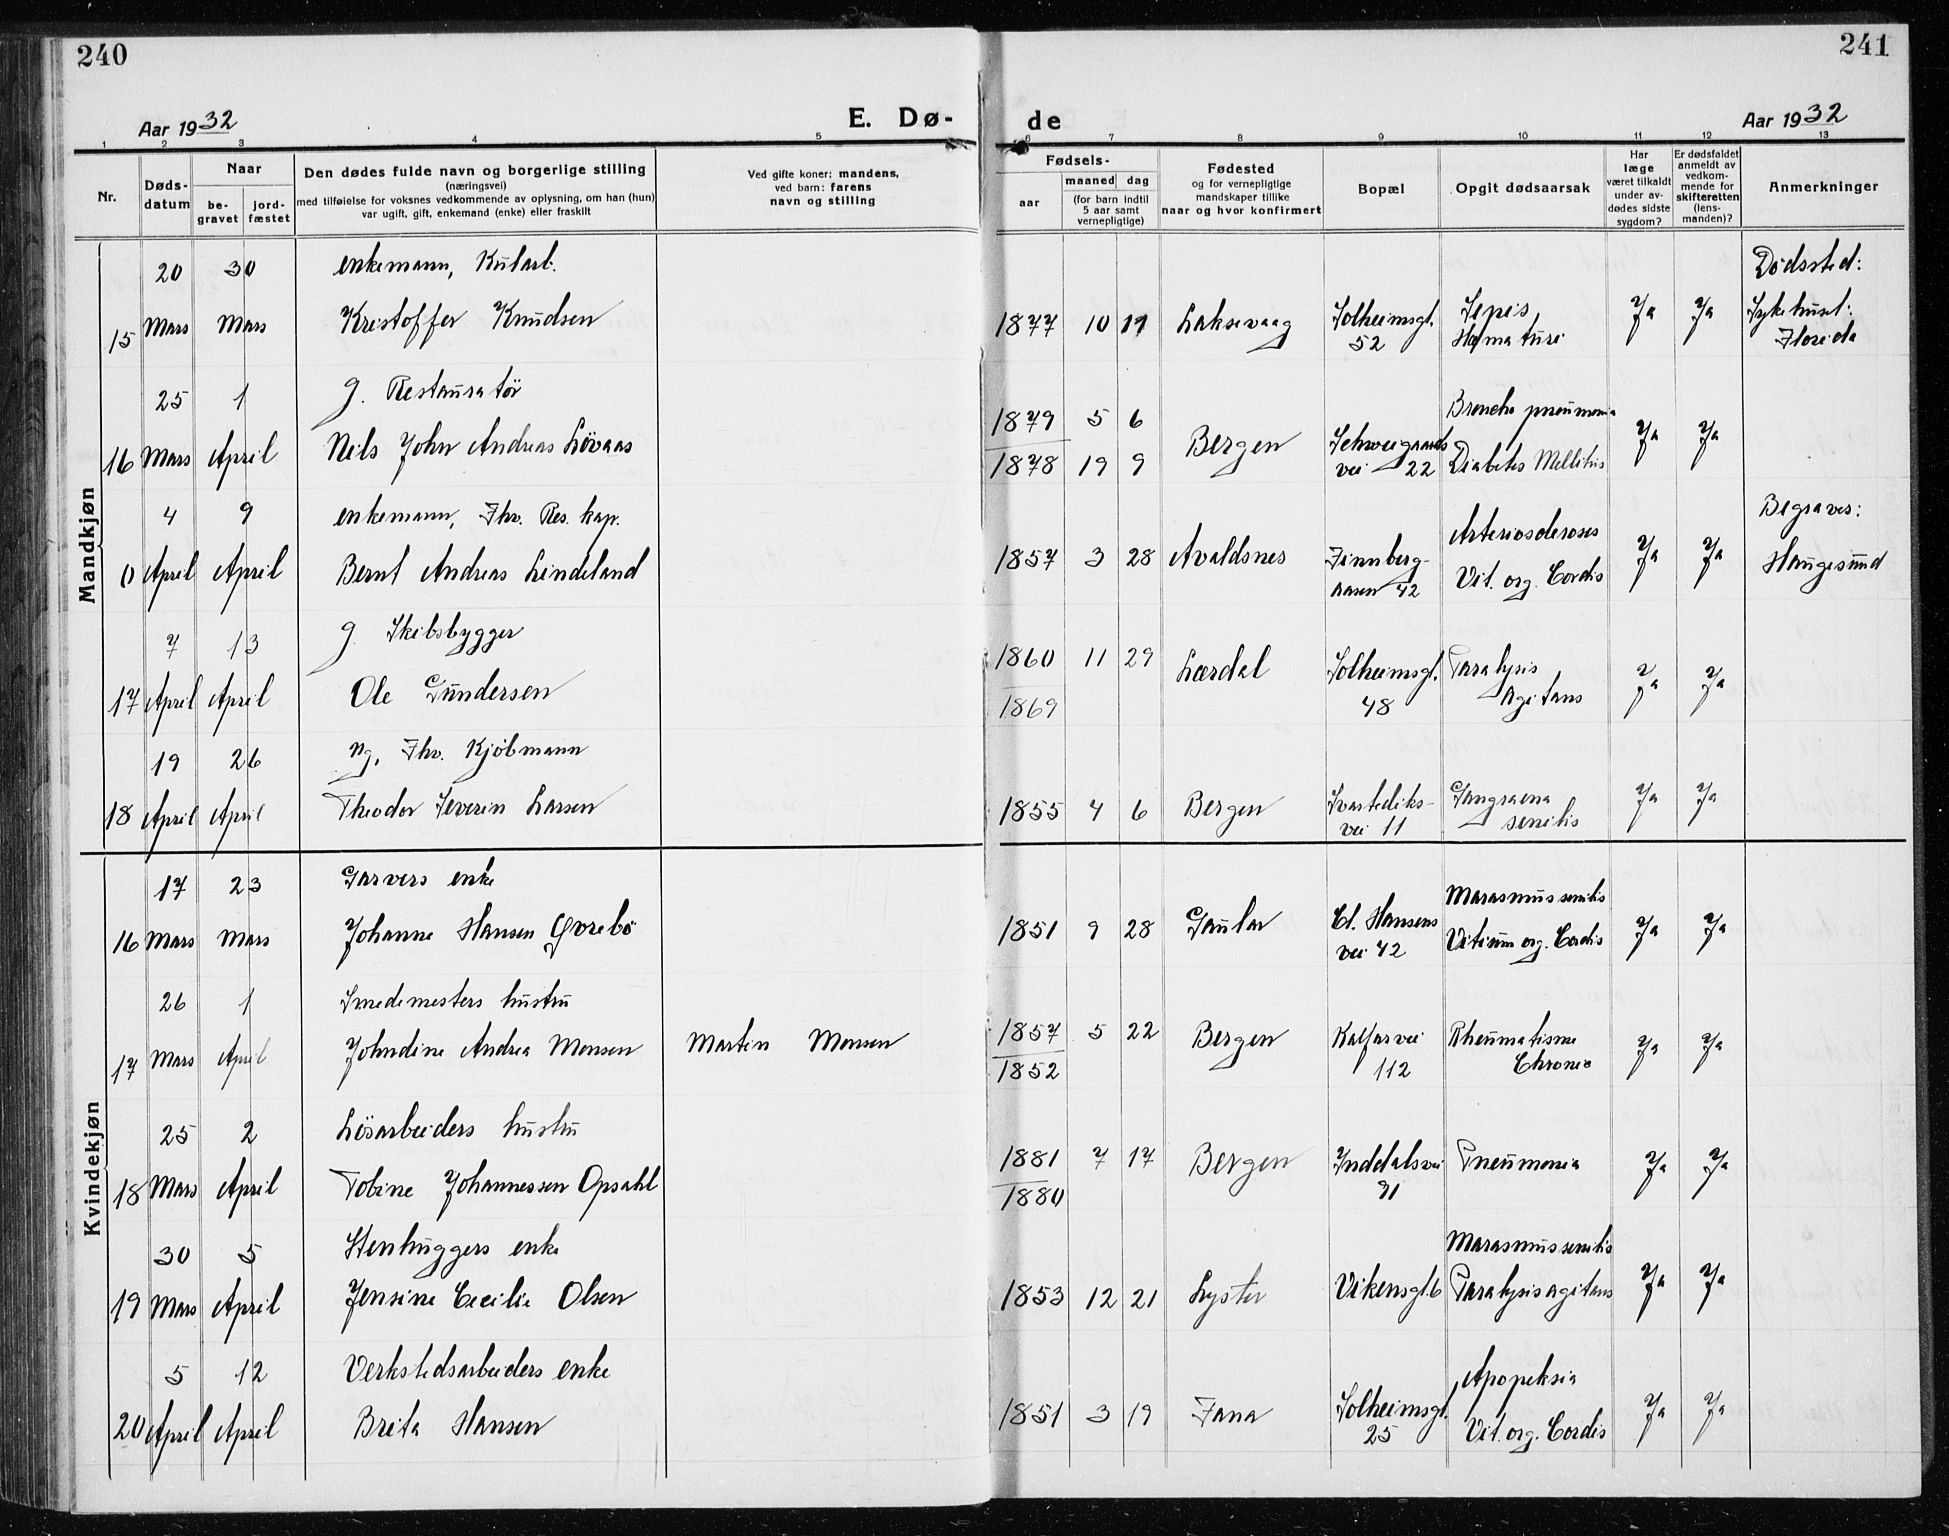 240
241
Aar 1932
E. Dø-
de
Aar 1932
1 2 3 4 5 6 7 8 9 10 11 12 13
Nr.
Døds-
datum
Naar
be-
gravet
jord-
fæstet
Den dødes fulde navn og borgerlige stilling
(næringsvei)
med tilføielse for voksnes vedkommende av oplysning, om han (hun)
var ugift, gift, enkemand (enke) eller fraskilt
Ved gifte koner: mandens,
ved barn: farens
navn og stilling
Fødsels-
aar
maaned dag
(for barn indtil
5 aar samt
vernepligtige)
Fødested
og for vernepligtige
mandskaper tillike
naar og hvor konfirmert
Bopæl
Opgit dødsaarsak
Har
læge
været tilkaldt
under av-
dødes sidste
sygdom?
Er dødsfaldet
anmeldt av
vedkom-
mende for
skifteretten
(lens-
manden)?
Anmerkninger
Mandkjøn
20 30 enkemann, Kularb. Dødssted:
15 Mars Mars Kristoffer Knudsen 1877 10 11 Laksevaag Solheimsgt. Sepsis Ja Ja Sykehuset:
52 Hematuri Florida
25 1 g. Restauratör 1879 5 6 Broncho pneumonia
16 Mars April Nils John Andreas Lövaas Bergen Schweigaards Ja Ja
1878 19 9 vei 22 Diabetes Mellitus
4 9 enkemann, Fhv. Res. kap. Arteriosclerosis Begraves:
0 April April Bernt Andreas Lindeland 1857 3 28 Avaldsnes Finnberg- Ja Ja Haugesund
aasen 42 Vit. org. Cordis
7 13 g. Skibsbygger 1860 11 29 Lærdal Solheimsgt. Paralysis Ja Ja
17 April April Ole Gundersen 1869 48 Agitans
19 26 ug. Fhv. Kjöbmann
18 April April Theodor Severin Larsen 1855 4 6 Bergen Svartediks- Gangraena Ja Ja
vei 11 senilis
Kvindekjøn
17 23 Garvers enke Marasmus senilis
16 Mars Mars Johanne Hansen Qvrebö 1851 9 28 Gaular Cl. Hansens Ja Ja
vei 42 Vitium org. Cordis
26 1 Smedemesters hustru
17 Mars April Johndine Andrea Monsen Martin Monsen 1857 5 22 Bergen Kalfarvei Rheumatisme Ja Ja
1852 112 Chronic
25 2 Lösarbeiders hustru
18 Mars April Tobine Johannessen Opsahl 1881 7 17 Bergen Inddalsvei Pneumonia Ja Ja
1880 91
30 5 Stenhuggers enke Marasmus senilis
19 Mars April Jensine Cecilie Olsen 1853 12 21 Lyster Vikensgt. 6 Paralysis agitans Ja Ja
5 12 Verkstedsarbeiders enke Apopeksia
20 April April Brita Hansen 1851 3 19 Fana Solheimsgt. Ja Ja
25 Vit. org. Cordis